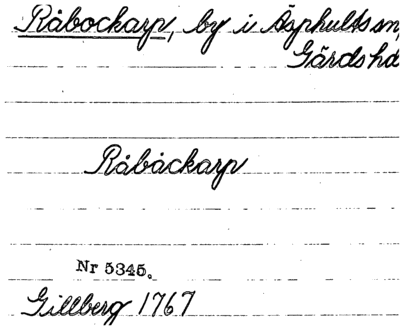 Råbockarp, by i Äsphults sn,
Gärds hd
Råbåckarp
Nr 5345.
Gillberg 1767